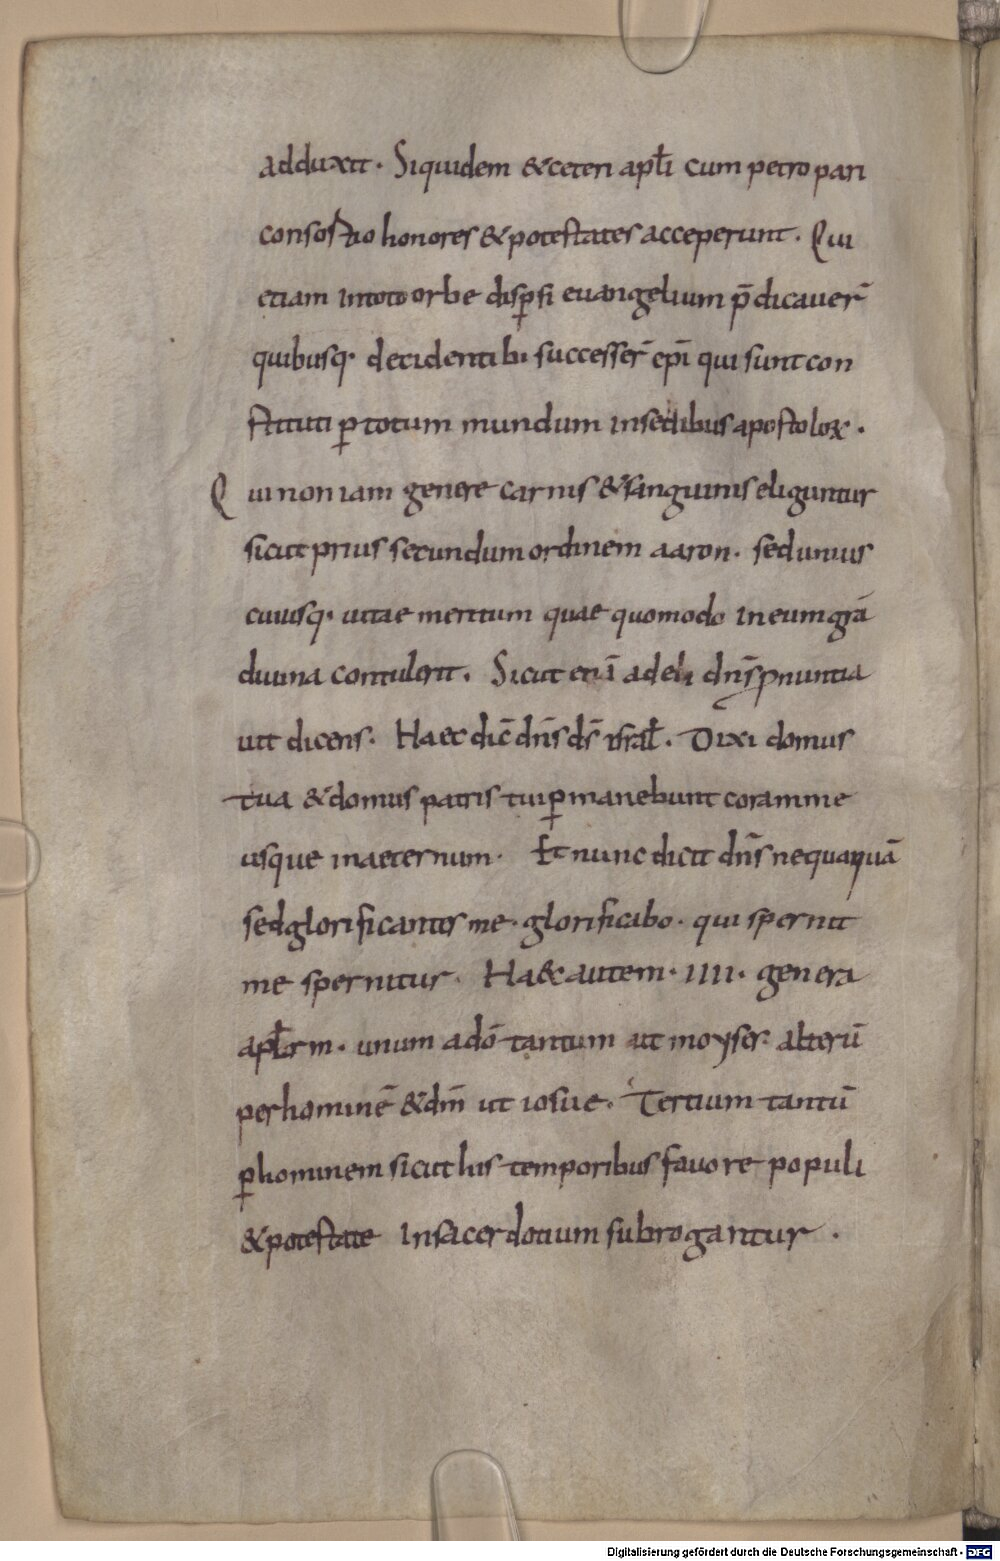 adduxit. Siquidem & ceteri apłi cum petro pari
consortio honores & potestates acceperunt. Qui
etiam intoto orbe dispersi euangelium p̄dicauer̄
quibusq· decidentib; successer̄ ep̄i qui sunt con
stituti ꝑ totum mundum insedibus apostoloꝝ.
Qui non iam genere carnis & sanguinis eliguntur
sicut prius secundum ordinem aaron. sed unius
cuiusq· uitae meritum quae quomodo in eum gr̄a
diuina contulerit. Sicut etiā ad eli dn̄s ꝓnuntia
uit dicens. Haec dic̄ dn̄s ds̄ isrł. Dixi domus
tua & domus patris tui ꝑmanebunt coram me
usque in aeternum. Et nunc dicit dn̄s nequaquā
sed glorificantes me. glorificabo. qui spernit
me spernitur. Ha& autem. IIII. genera
apłorm. unum adō tantum ut moyses. alterū
per hominē & dm̄ ut iosue. Tertium tantū
ꝑ hominem sicut his temporibus fauore populi
& potestate in sacerdotium subrogantur.
Digitalisierung gefördert durch die Deutsche Forschungsgemeinschaft - DFG